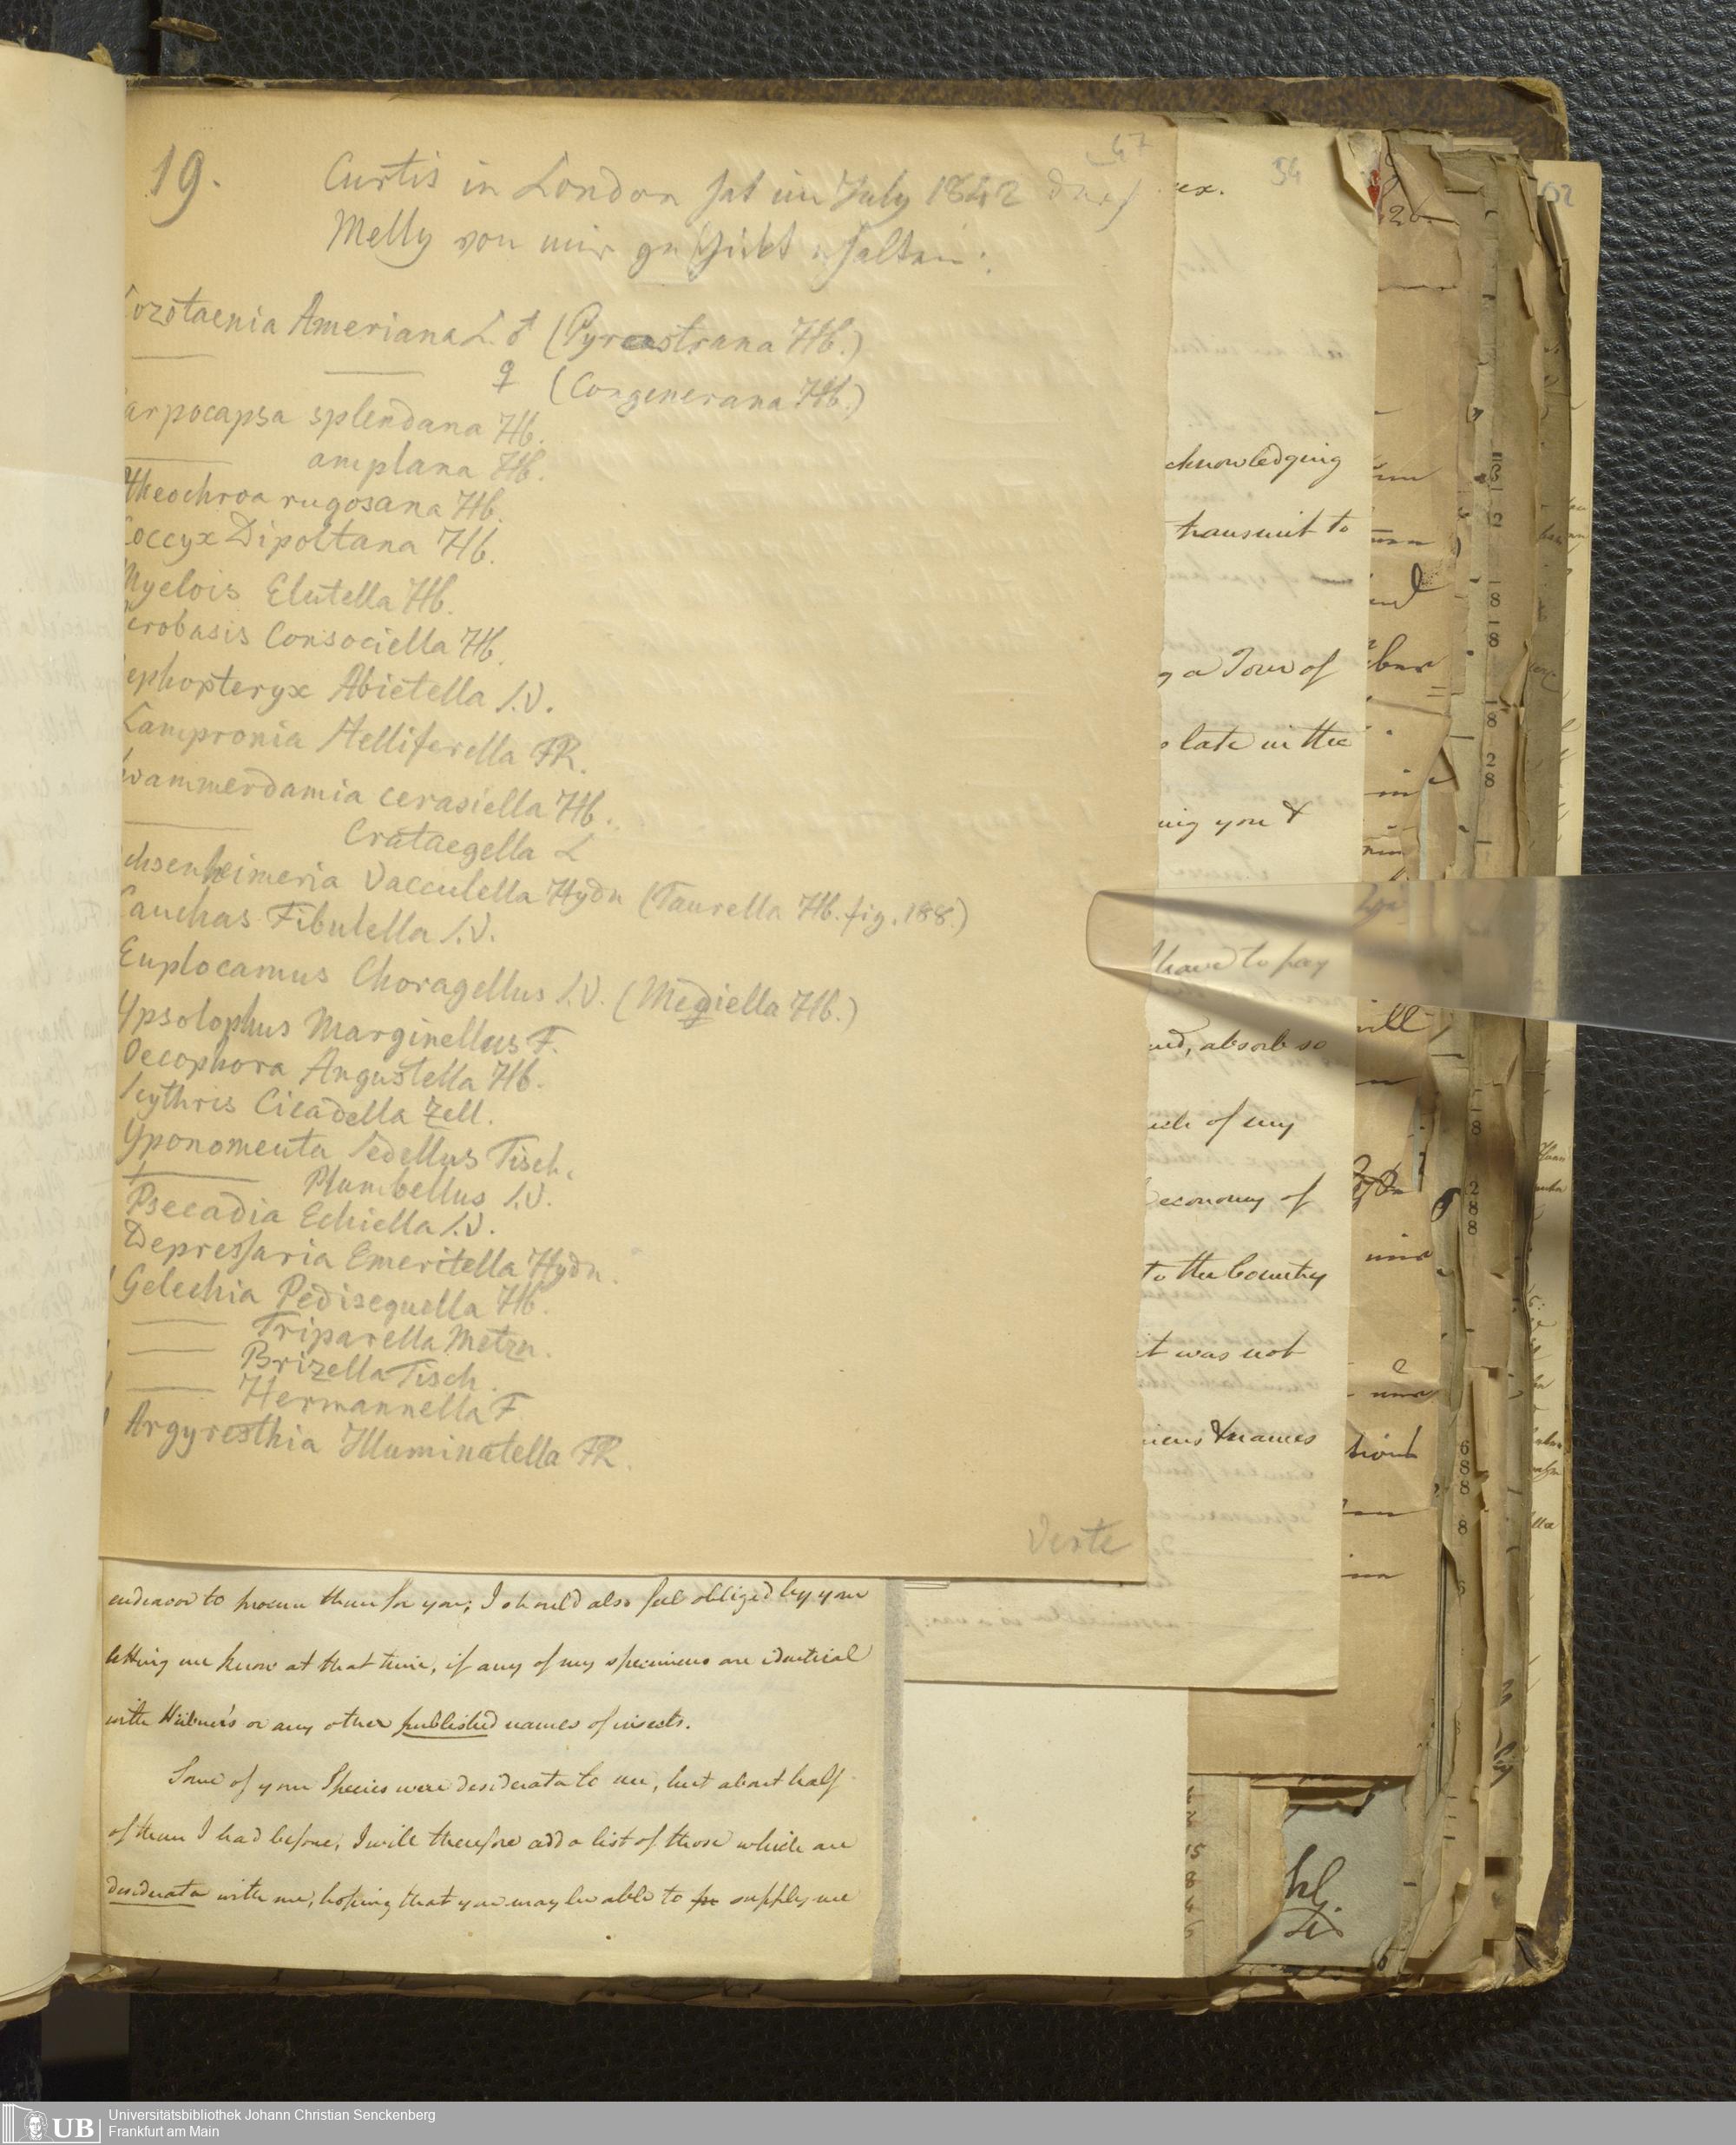 19.
47
Curtis in London hat im July 1842 durch
Melly von mir geschickt erhalten:
Lozotaenia Ameriana L. ♂ (Pyrastrana Hb.)
♀ (Congenerana Hb.)
arpocapsa splendana Hb.
amplana Hb.
theochroa rugosana Hb.
Coccyx Dipoltana Hb.
Myelois Elutella Hb.
crobasis Consociella Hb.
ephopteryx Abietella S.V.
Lampronia Stelliferella FR.
wammerdamia cerasiella Hb.
Crataegella L
chsenheimeria Vacculella Hydn (Taurella Hb. fig. 188.)
Cauchas Fibulella S.V.
Euplocamus Choragellus S.V. (Mediella Hb.)
Ypsolophus Marginellus F.
Oecophora Angustella Hb.
Scythris Cicadella Zell.
Yponomeuta Sedellus Tisch.
Plumbellus S.V.
Psecadia Echiella S.V.
Depressaria Emeritella Hydn.
Gelechia Pedisequella Hb.
Triparella Metzn.
Brizella Tisch.
Hermannella F.
Argyresthia Illuminatella FR.
Verte
endeavor to procure them for you; I should also feel obliged by your
letting me know at that time, if any of my specimens are identical
with Hübner's or any other published names of insects.
Some of your Species were desiderata to me, but about half
of them I had before, I will therefore add a list of those which are
desiderata with me, hoping that you may be able to supply me
54
ex.
cknowledging
transmit to
g a Tour of
late in the
ing you &
have to pay
absorb so
of my
economy of
to the Country
it was not
& names
52
26.
will
UB
Universitätsbibliothek Johann Christian Senckenberg
Frankfurt am Main